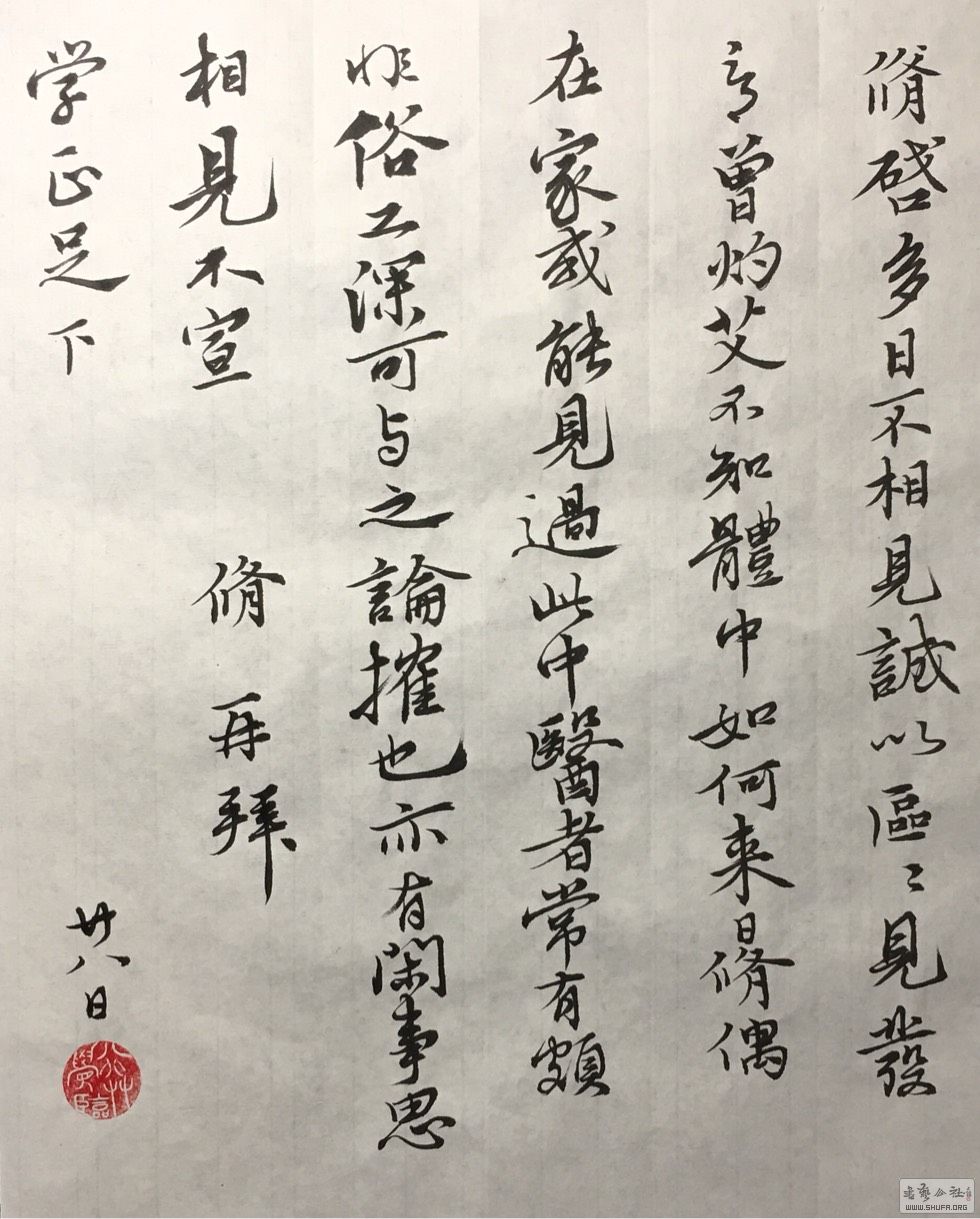 脩啓多日不相見誠以區〻見發
言曾灼艾不知體中如何來日脩偶
在家或能見過此中醫者常有頗
非俗工深可与之論搉也亦有閑事思
相見不宣 脩再拜
学正足下
廿八日
書藝公社
WWW.SHUFA.ORG